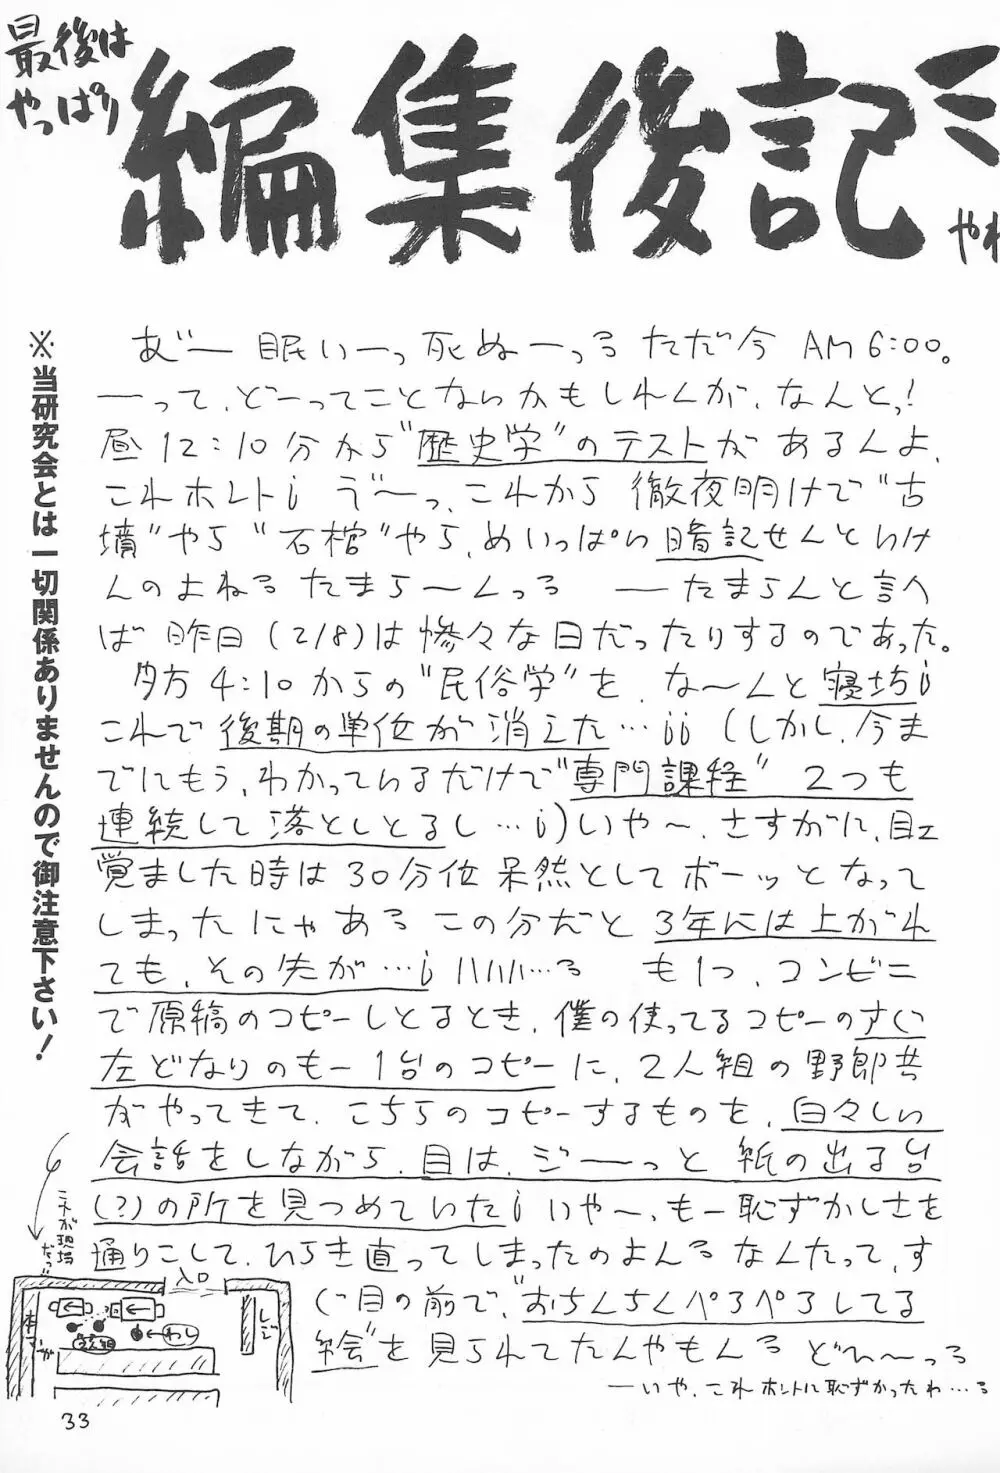 最後は
やっぱり
編集後記ミ
やれ
あ゛〜眠い〜っ死ぬ〜っる ただ今 AM6:00。
―って、ど〜ってことないかもしれんが、なんとっ!
昼12:10分から“歴史学”のテストがあるんよ、
これホントi う゛〜っ、これから徹夜明けで“古
墳”やら“石棺”やら、めいっぱい暗記せんといけ
んのよねる たまら〜んっる ―たまらんと言へ
ば昨日(2/8)は惨々な日だったりするのであった。
夕方4:10からの“民俗学”を、な〜んと寝坊i
これで後期の単位が消えた…ii(しかし、今ま
でにもう、わかっているだけで“専門課程”2つも
連続して落としとるし…i)いや〜、さすがに、目エ
覚ました時は30分位呆然としてボーッとなって
しまったにゃある この分だと3年には上がれ
ても、その先が…i |||||||…る も1つ、コンビニ
で原稿のコピーしとるとき、僕の使ってるコピーのすぐ
左どなりのも一1台のコピーに、2人組の野郎共
がやってきて、こちらのコピーするものを、白々しい
会話をしながら、目は、ジ〜っと紙の出る台
(?)の所を見つめていたi いや〜、も一恥ずかしさを
通りこして、ひらき直ってしまったのよんる なんたって、す
ぐ目の前で、“おちんちんペろペろしてる
絵”を見られてたんやもんる どひ〜っる
―いや、これホントに恥ずかったわ…る
※当研究会とは一切関係ありませんので御注意下さい!
これが現場
だっ!!
入口
本
2人組
わし
レジ
33